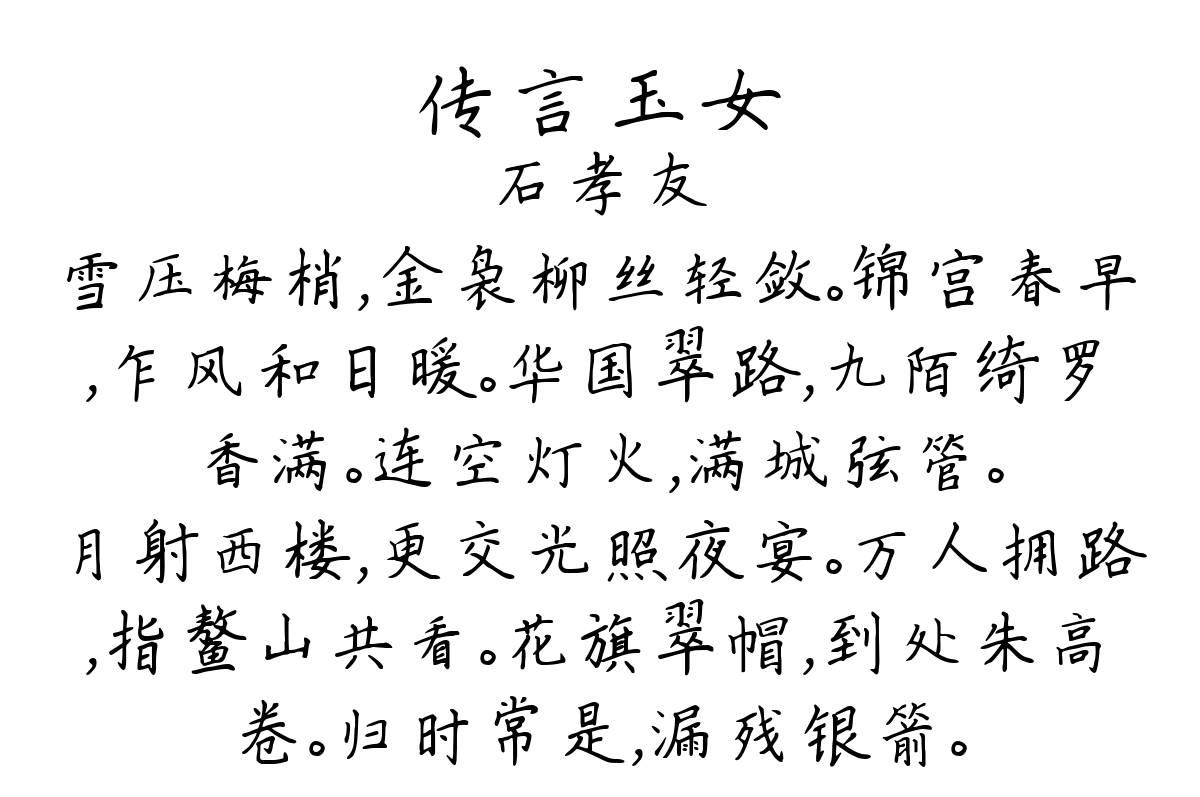 传言玉女
石孝友
雪压梅梢,金袅柳丝轻敛。锦宫春早
,乍风和日暖。华国翠路,九陌绮罗
香满。连空灯火,满城弦管。
月射西楼,更交光照夜宴。万人拥路
,指鳌山共看。花旗翠帽,到处朱高
卷。归时常是,漏残银箭。